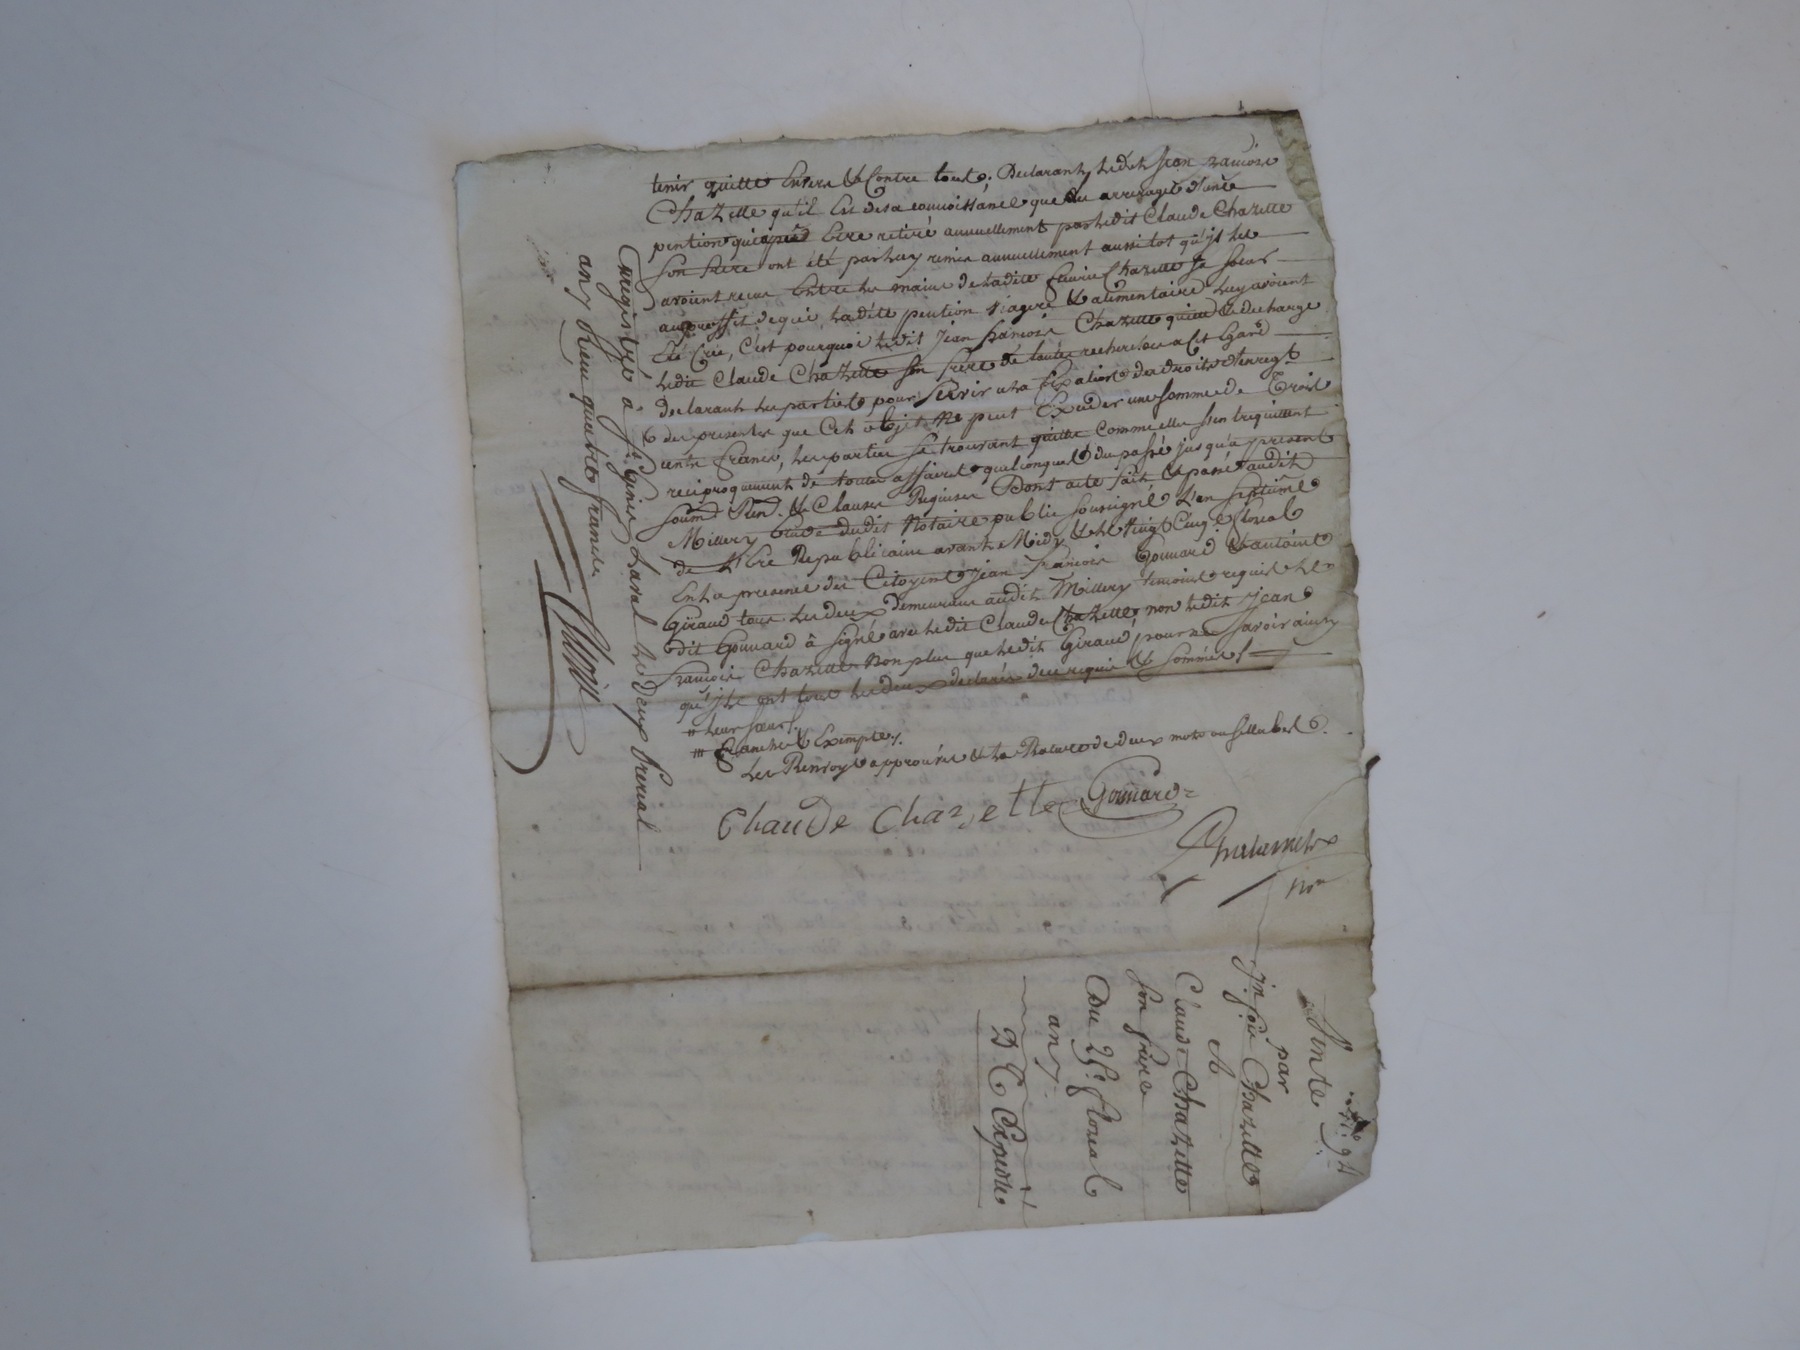 tenir quitte Envers & Contre tous, Declarant Ledit Jean francois
Chazette qu'il Est de sa connoissance que les arrerages d'une
pention qui a pu Etre retiré annuellement par Ledit Claude Chazette
son frere ont été par Luy remis annuellement aussitot qu'jl les
avoient recus Entre les mains de Ladite Chazette sa soeur
au proffit de qui Ladite pention viagere & alimentaire Luy avoient
Eté Créé, C'est pourquoi Ledit Jean francois Chazette quitte & decharge
Ledit Claude Chazette son frere de toutes recherches a Cet Egard
Declarant les parties pour servir a la fixation des droits d'enregt
des presentes que Cet objet Ne peut Exceder une somme de Trois
cents francs, les parties se trouvant quitte Comme elles s'en tiequittent
reciproquement de toutes affaires quelconques du passé jusqu'a present
soumn Ren. & Clauses Requises Dont acte fait & passé audit
Millery Etude dudit Notaire public soussigné L'an septieme
de L'Ere Republicaine avant Midy & le Vingt Cinq floreal
En la presence des Citoyens Jean francois Gonnard & antoine
Giraud tous les deux Demeurans audit Millery temoins requis Le
dit Gonnard à signé avec Ledit Claude Chazette non Ledit Jean
francois Chazette Non plus que Ledit Giraud, pour ne savoir ainsy
qu'jls ont tous les deux declarés de ce requis & sommés ./
# leur soeur ./.
/// franche & Exempte ./.
Les Renvoys approuvés & La Rature de deux mots ou sillabes
Claude Chazette Gonnard
nre
Enregistré à St Genis Laval le deux Prerial
an 7 Reçu quatre francs
N.° 94
Vente
par
Jn fois Chazette
A
Claude Chazette
son frere
Du 25e floreal
an 7
D C Expedie